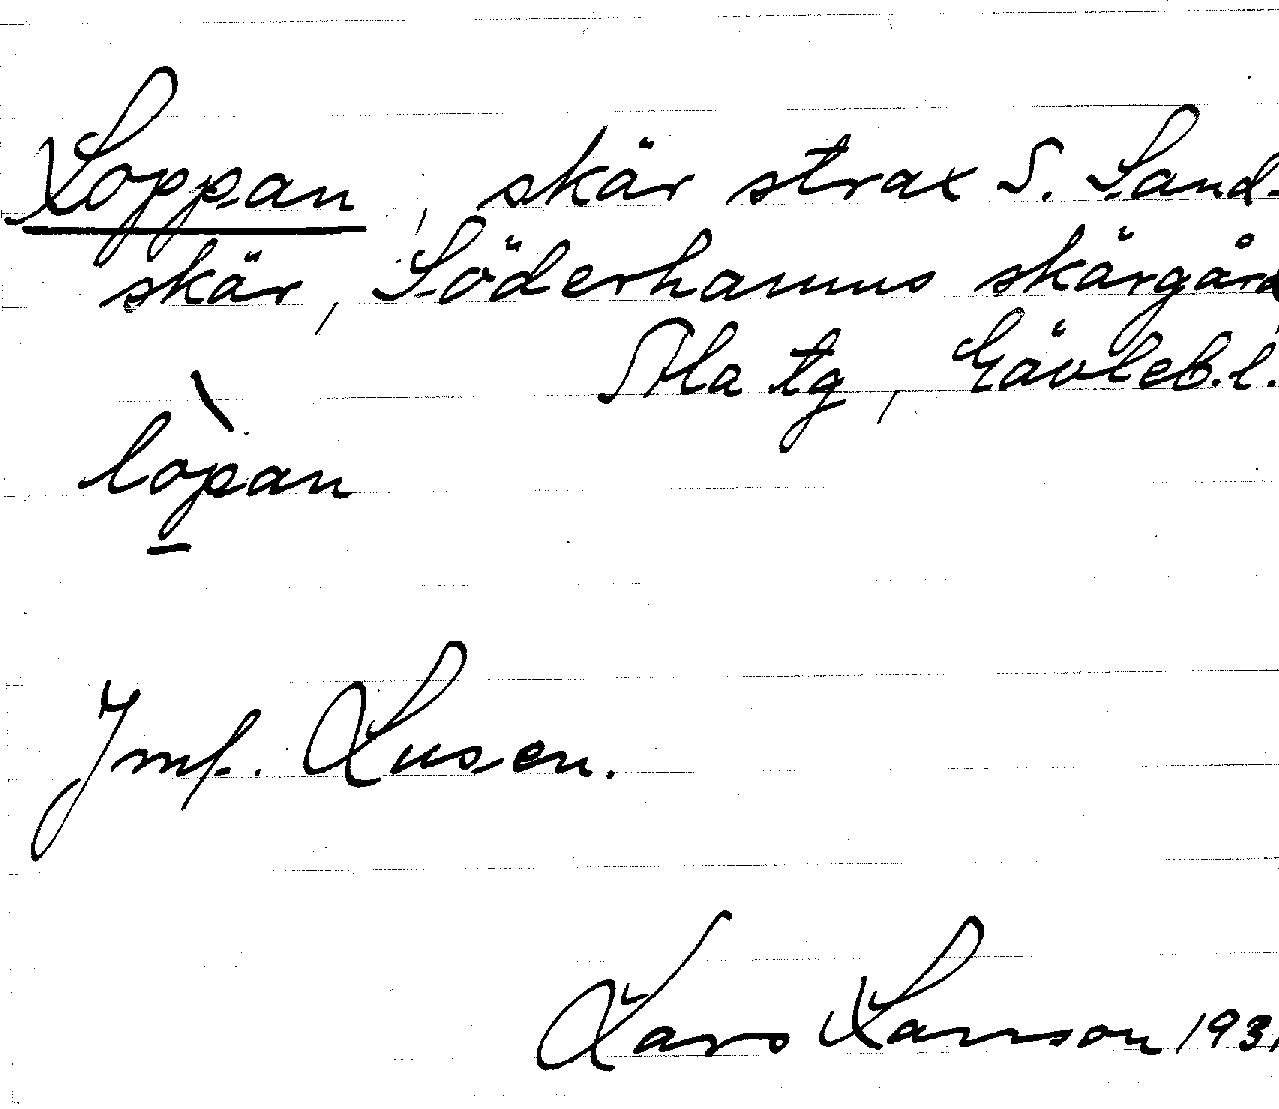 Loppan, skär strax S. Sand-
skär, Söderhamns skärgård
Ala tg, Gävleb. l.
lòpan
Jmf. Lusen.
Lars Larsson 193